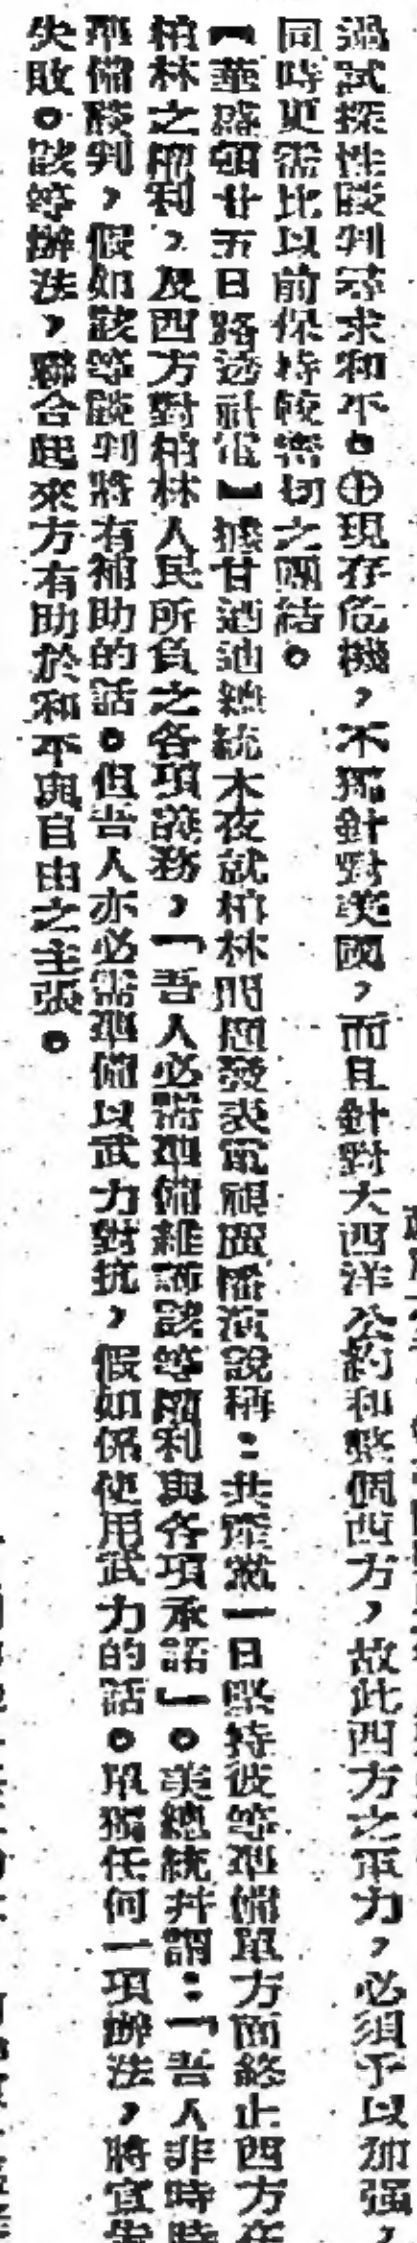 過試探性談判尋求和平。㊉現存危機，不獨針對美國，而且針對大西洋公約和整個西方，故此西方之軍力，必須予以加强，
同時更需比以前保持較密切之團結。
【華盛頓廿五日路透社電】據甘迺迪總統本夜就柏林問題發表電視廣播演說稱：共產黨一日堅持彼等準備單方面終止西方在
柏林之權利，及西方對柏林人民所負之各項義務，「吾人必需準備維護該等權利與各項承諾」。美總統并謂：「吾人非時時
準備談判，假如該等談判將有補助的話。但吾人亦必需準備以武力對抗，假如係使用武力的話。單獨任何一項辦法，將宣告
失敗。該等辦法，聯合起來方有助於和平與自由之主張。